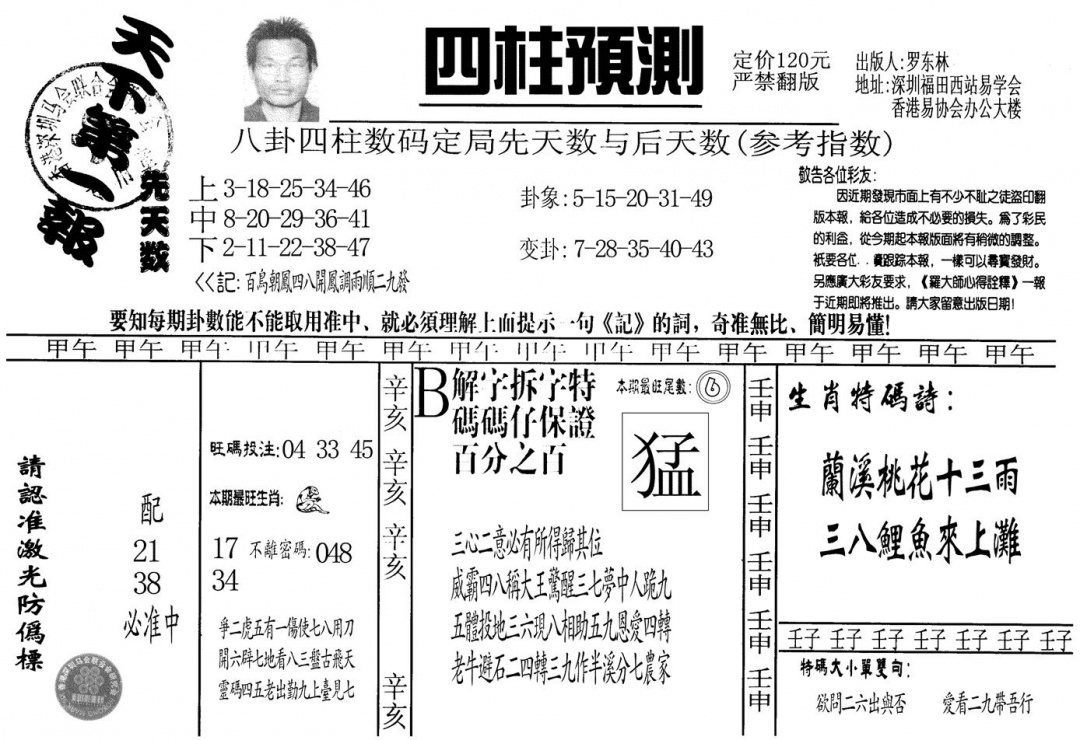 天下第一報
四柱預測
定价120元
严禁翻版
出版人:罗东林
地址:深圳福田西站易学会
香港易协会办公大楼
八卦四柱数码定局先天数与后天数(参考指数)
先天数
上 3-18-25-34-46
中 8-20-29-36-41
下 2-11-22-38-47
卦象:5-15-20-31-49
变卦:7-28-35-40-43
<<記:百鳥朝鳳四八開鳳調雨順二九發
敬告各位彩友:
因近期發現市面上有不少不耻之徒盜印翻
版本報，給各位造成不必要的損失。爲了彩民
的利益，從今期起本報版面將有稍微的調整。
衹要各位..費跟踪本報，一樣可以尋寶發財。
另應廣大彩友要求，《羅大師心得詮釋》一報
于近期即將推出。請大家留意出版日期!
要知每期卦數能不能取用准中、就必須理解上面提示一句《記》的詞，奇准無比、簡明易懂!
甲午 甲午 甲午 甲午 甲午 甲午 甲午 甲午 甲午 甲午 甲午 甲午 甲午 甲午 甲午
請認准激光防僞標
配
21
38
必准中
旺碼投注:04 33 45
本期最旺生肖:
17 不離密碼:048
34
爭二虎五有一傷使七八用刀
開六辟七地看八三盤古飛天
靈碼四五老出勤九上臺見七
辛亥
辛亥
辛亥
辛亥
B解字拆字特
碼碼仔保證
百分之百
本期最旺尾數:6
猛
三心二意必有所得歸其位
威霸四八稱大王驚醒三七夢中人跪九
五體投地三六現八相助五九恩愛四轉
老牛避石二四轉三九作半溪分七農家
壬申
壬申
壬申
壬申
壬申
壬申
生肖特碼詩:
蘭溪桃花十三雨
三八鯉魚來上灘
壬子 壬子 壬子 壬子 壬子 壬子 壬子
特碼大小單雙句:
欲問二六出與否 愛看二九帶吾行